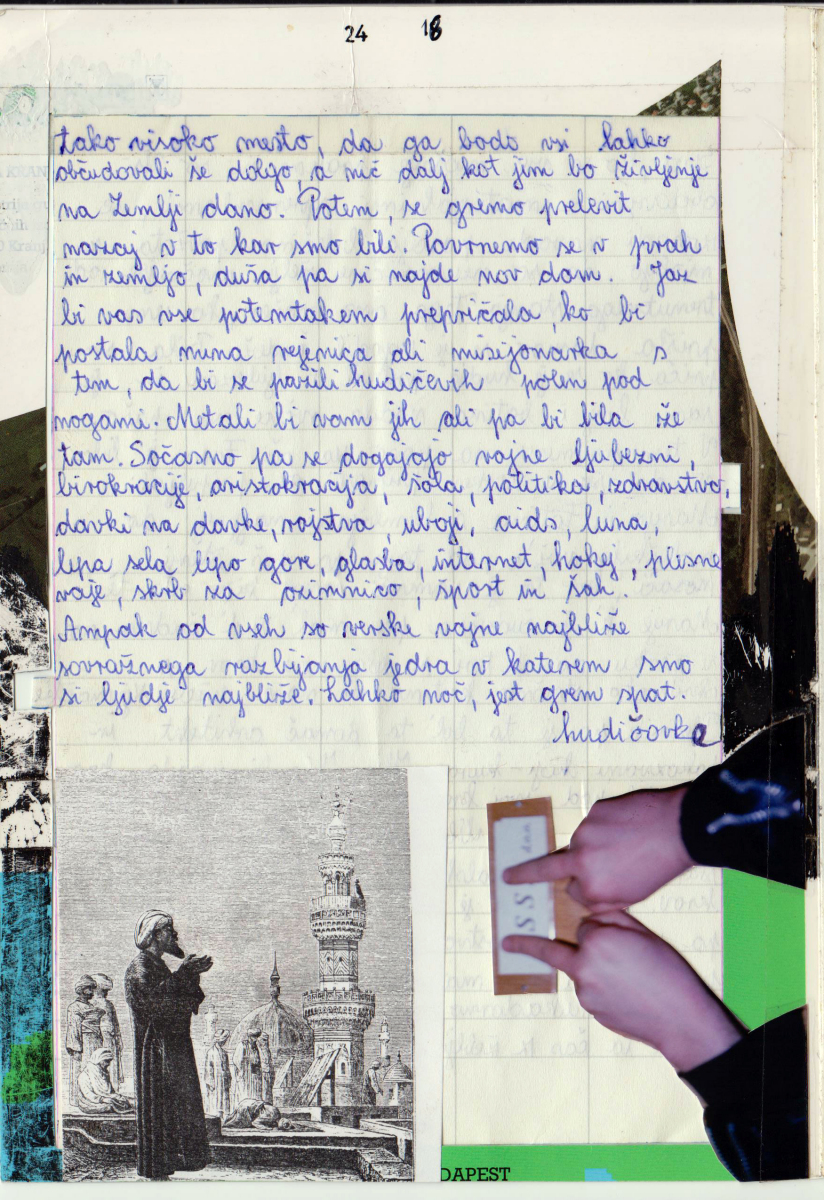 24 18
tako visoko mesto, da ga bodo vsi lahko
občudovali še dolgo, a nič dalj kot jim bo življenje
na Zemlji dano. Potem, se gremo prelevit
nazaj v to kar smo bili. Povrnemo se v prah
in zemljo, duša pa si najde nov dom. Jaz
bi vas vse potemtakem prepričala, ko bi
postala nuna rejenica ali misijonarka s
tem, da bi se pazili hudičevih polen pod
nogami. Metali bi vam jih ali pa bi bila že
tam. Sočasno pa se dogajajo vojne ljubezni,
birokracije, aristokracija, šola, politika, zdravstvo,
davki na davke, rojstva, uboji, aids, luna,
lepa sela lepo gore, glasba, internet, hokej, plesne
vaje, skrb za ozimnico, šport in šah.
Ampak od vseh so verske vojne najbliže
sovražnega razbijanja jedra v katerem smo
si ljudje najbliže. Lahko noč, jest grem spat.
hudičovka
SS
dan
DAPEST